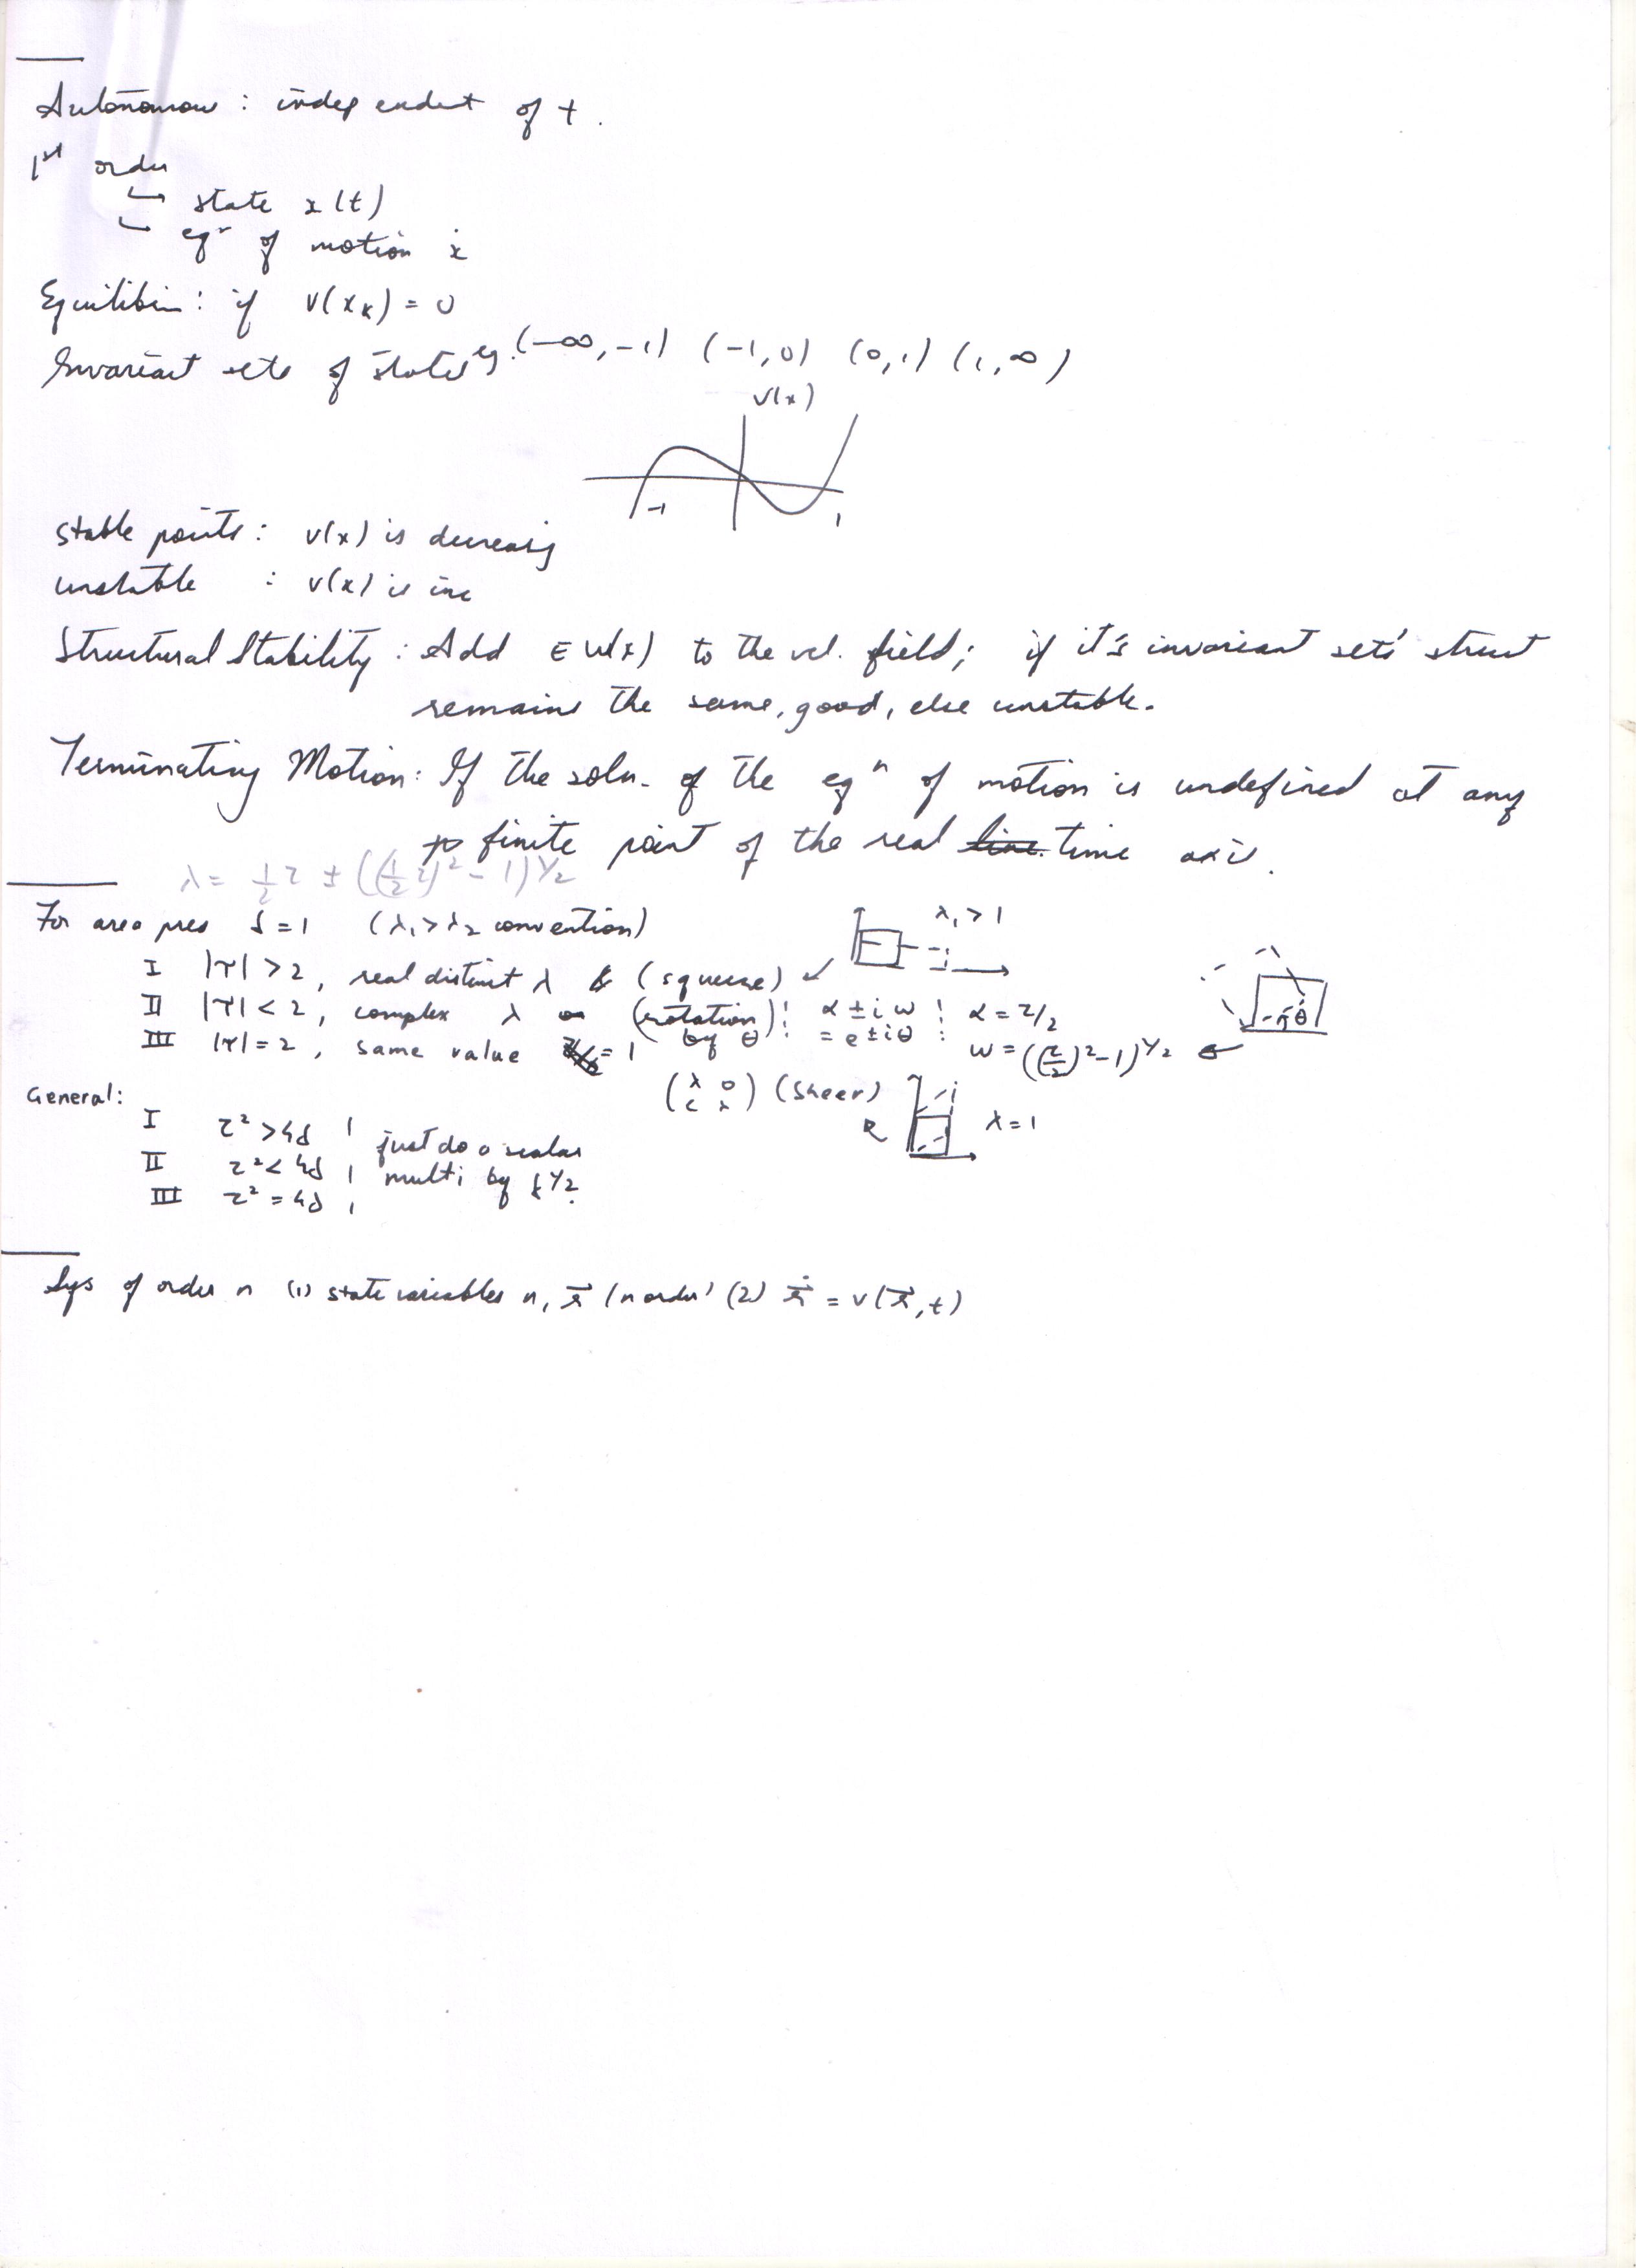 Autonomous : independent of t.
1st order
↳ state x(t)
↳ eqn of motion ẋ
Equilibrium : if v(xk) = 0
Invariant sets of states eg. (-∞, -1) (-1, 0) (0, 1) (1, ∞)
v(x)
-1 1
stable points : v(x) is decreasing
unstable : v(x) is inc
Structural Stability : Add ∈ w(x) to the vel. field; if it's invariant sets' struct
remains the same, good, else unstable.
Terminating Motion: If the soln. of the eqn of motion is undefined at any
finite point of the real time axis.
λ = ½ τ ± ((½ τ)² - 1)^½
For area pres δ = 1 (λ₁ > λ₂ convention)
λ₁ > 1
I |τ| > 2, real distinct λ (squeeze)
II |τ| < 2, complex λ (rotation) by θ : α ± iω = e^±iθ : α = τ/2
ω = ((τ/2)² - 1)^½
θ
III |τ| = 2, same value = 1
(λ 0
c λ) (Sheer) λ = 1
General:
I τ² > 4δ just do a scalar
II τ² < 4δ multi by δ^½.
III τ² = 4δ
Sys of order n (1) state variables n, r⃗ (n order) (2) ṙ⃗ = v(r⃗, t)